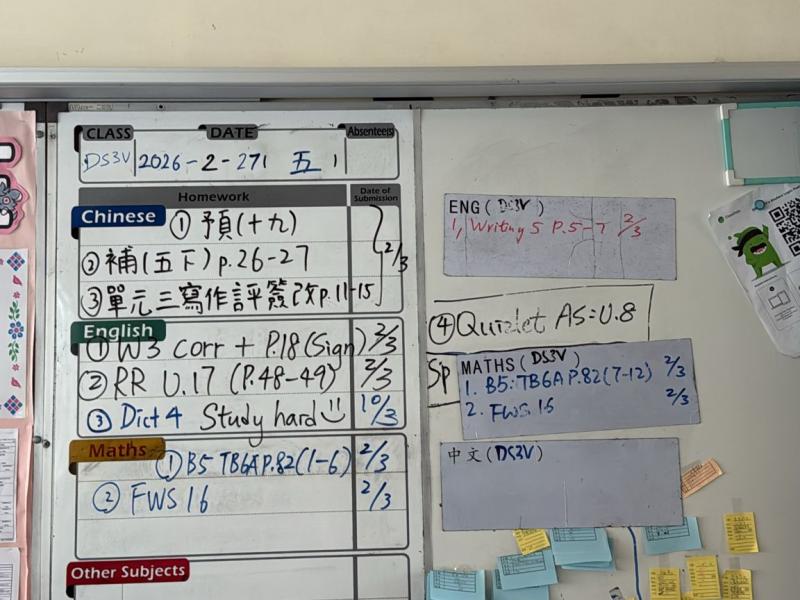 CLASS DATE Absentee(s)
DS3V 2026-2-27 五 1
Homework Date of Submission
Chinese ① 預(十九)
② 補(五下) p.26-27 2/3
③ 單元三寫作評簽改p.11-15
English
① W3 corr + P.18(Sign) 2/3
② RR U.17 (P.48-49) 2/3
③ Dict 4 Study hard 10/3
Maths ① B5 TB6A P.82(1-6) 2/3
② FWS 16 2/3
Other Subjects
ENG ( DS3V )
1, Writing 5 P.5-7 2/3
④ Quizlet AS: U.8
Sp
MATHS ( DS3V )
1. B5: TB6A P.82(7-12) 2/3
2. FWS 16 2/3
中文 ( DS3V )